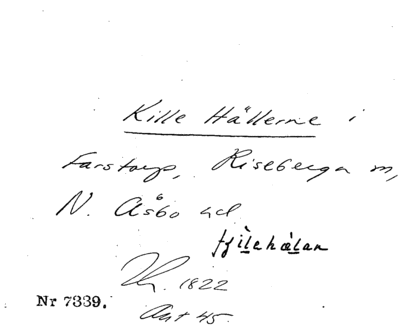 Kille Hällerne i
Farstorp, Riseberga m,
N. Åsbo hd
Th. 1822
Nr 7339.
Ant 45.